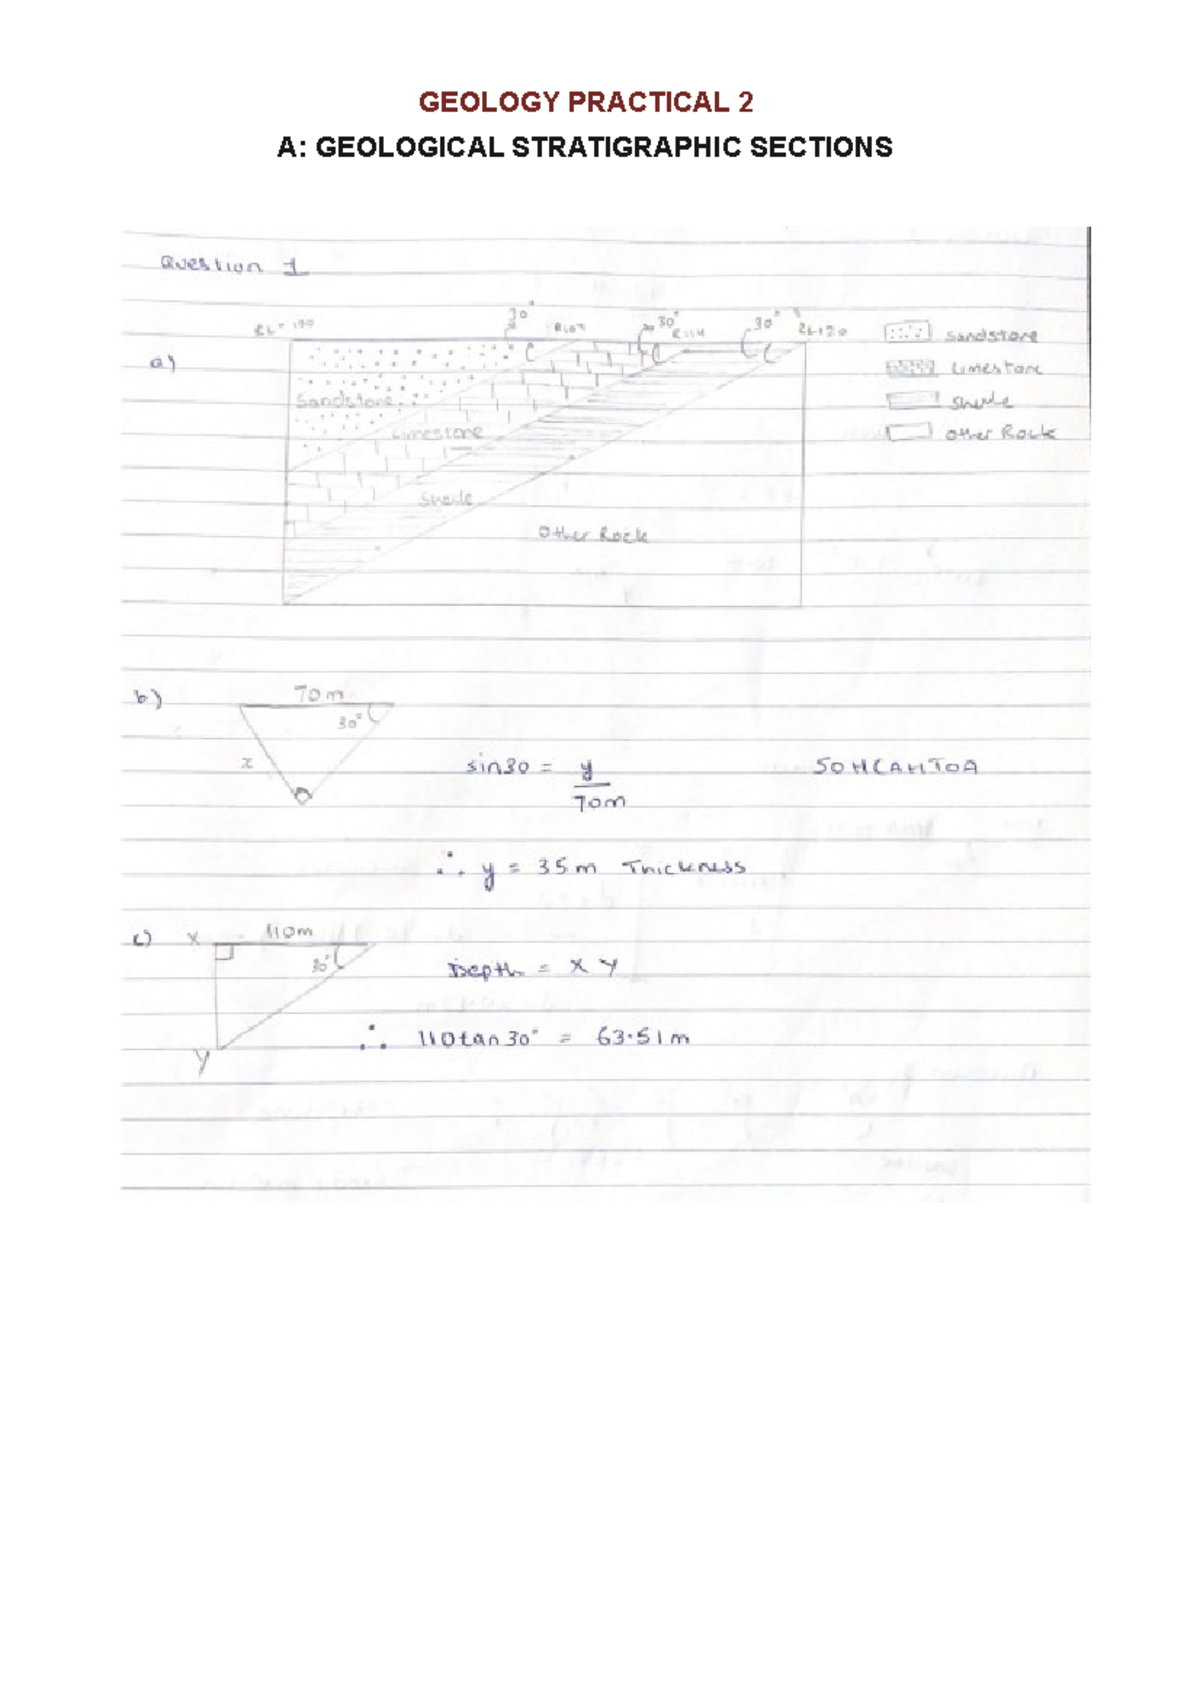 GEOLOGY PRACTICAL 2
A: GEOLOGICAL STRATIGRAPHIC SECTIONS
Question 1
30° 30° 30°
a)
Sandstone
Limestone
Shale
Other Rock
Sandstone
Limestone
Shale
Other Rock
b) 70m
30°
x
sin30 = y
70m
SOHCAHTOA
∴ y = 35m Thickness
c) X 110m
30°
Y
Depth = XY
∴ 110tan30° = 63.51m